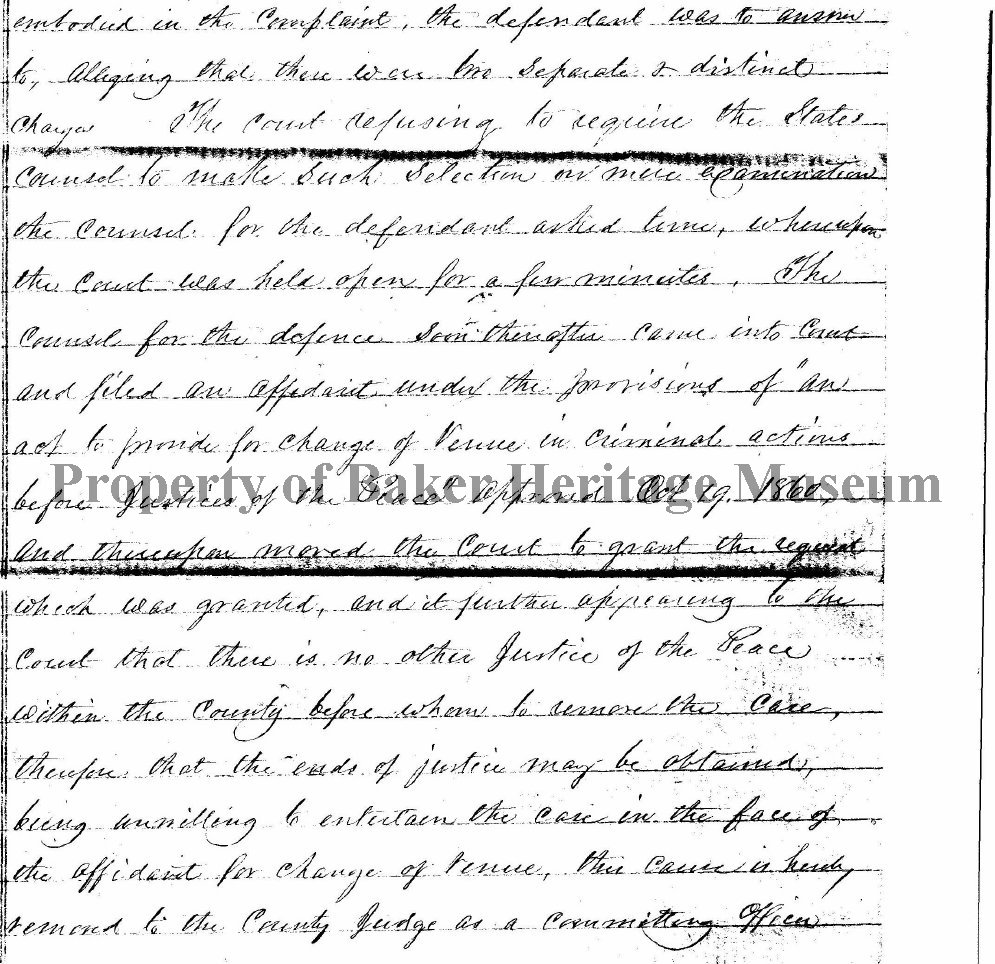 embodied in the Complaint, the defendant was to answer
to, Alleging that there were two separate & distinct
Charges The court refusing to require the States
Counsel to make such selection on mere examination
the Counsel for the defendant asked time, whereupon
the Court was held open for a few minutes. The
Counsel for the defence soon thereafter came into Court
and filed an affidavit under the provisions of "an
act to provide for change of Venue in criminal actions
before Justices of the Peace" Approved Oct 19, 1860,
Property of Baker Heritage Museum
And thereupon moved the Court to grant the request
which was granted, and it further appearing to the
Court that there is no other Justice of the Peace
within the County before whom to remove the Case,
therefore that the ends of justice may be obtained,
being unwilling to entertain the case in the face of
the affidavit for change of Venue, this cause is hereby
removed to the County Judge as a committing Officer